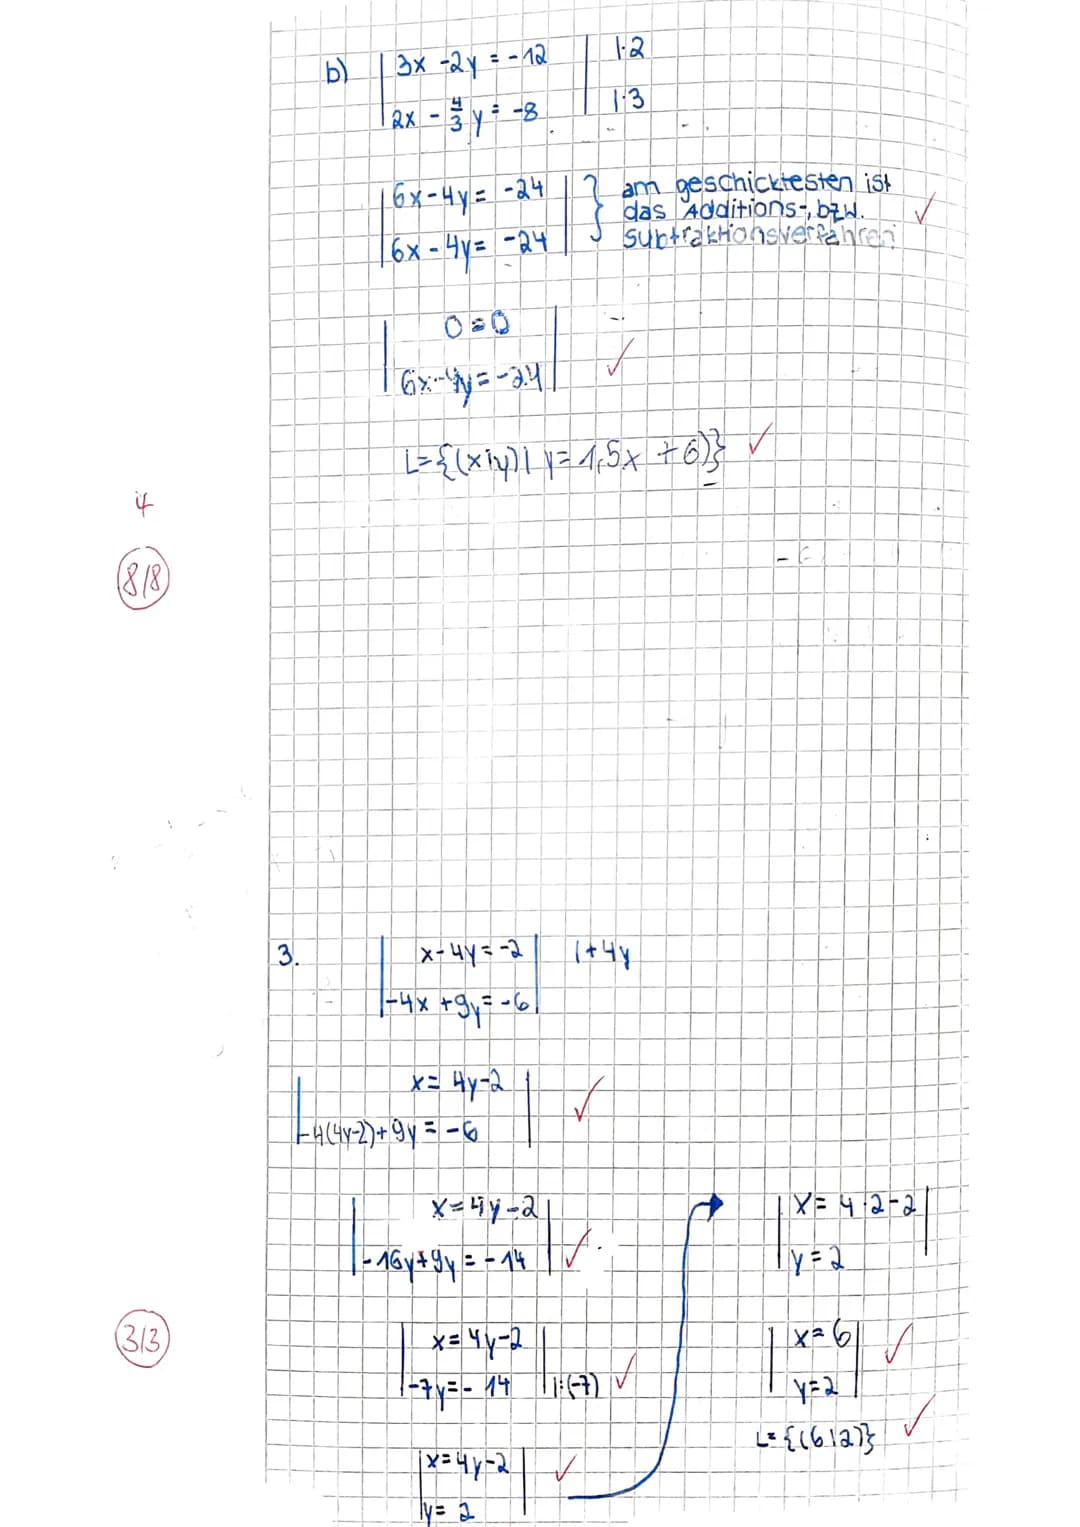 b) | 3x - 2y = -12 | | ·2
| 2x - 4/3 y = -8 | | ·3
| 6x - 4y = -24 | } am geschicktesten ist
das Additions-, bzw.
| 6x - 4y = -24 | Subtraktionsverfahren ✓
| 0 = 0 |
| 6x - 4y = -24 | ✓
L={(x|y)| y = 1,5x + 6)} ✓
4
8/8
3. | x - 4y = -2 | | +4y
| -4x + 9y = -6 |
| x = 4y-2 | ✓
| -4(4y-2) + 9y = -6 |
| x = 4y - 2 |
| -16y + 9y = -14 | ✓
| x = 4y-2 |
| -7y = -14 | | :(-7) ✓
3/3
| x = 4y-2 | ✓
| y = 2
| x = 4·2-2 |
| y = 2 |
| x = 6 | ✓
| y = 2 |
L = {(6|2)} ✓